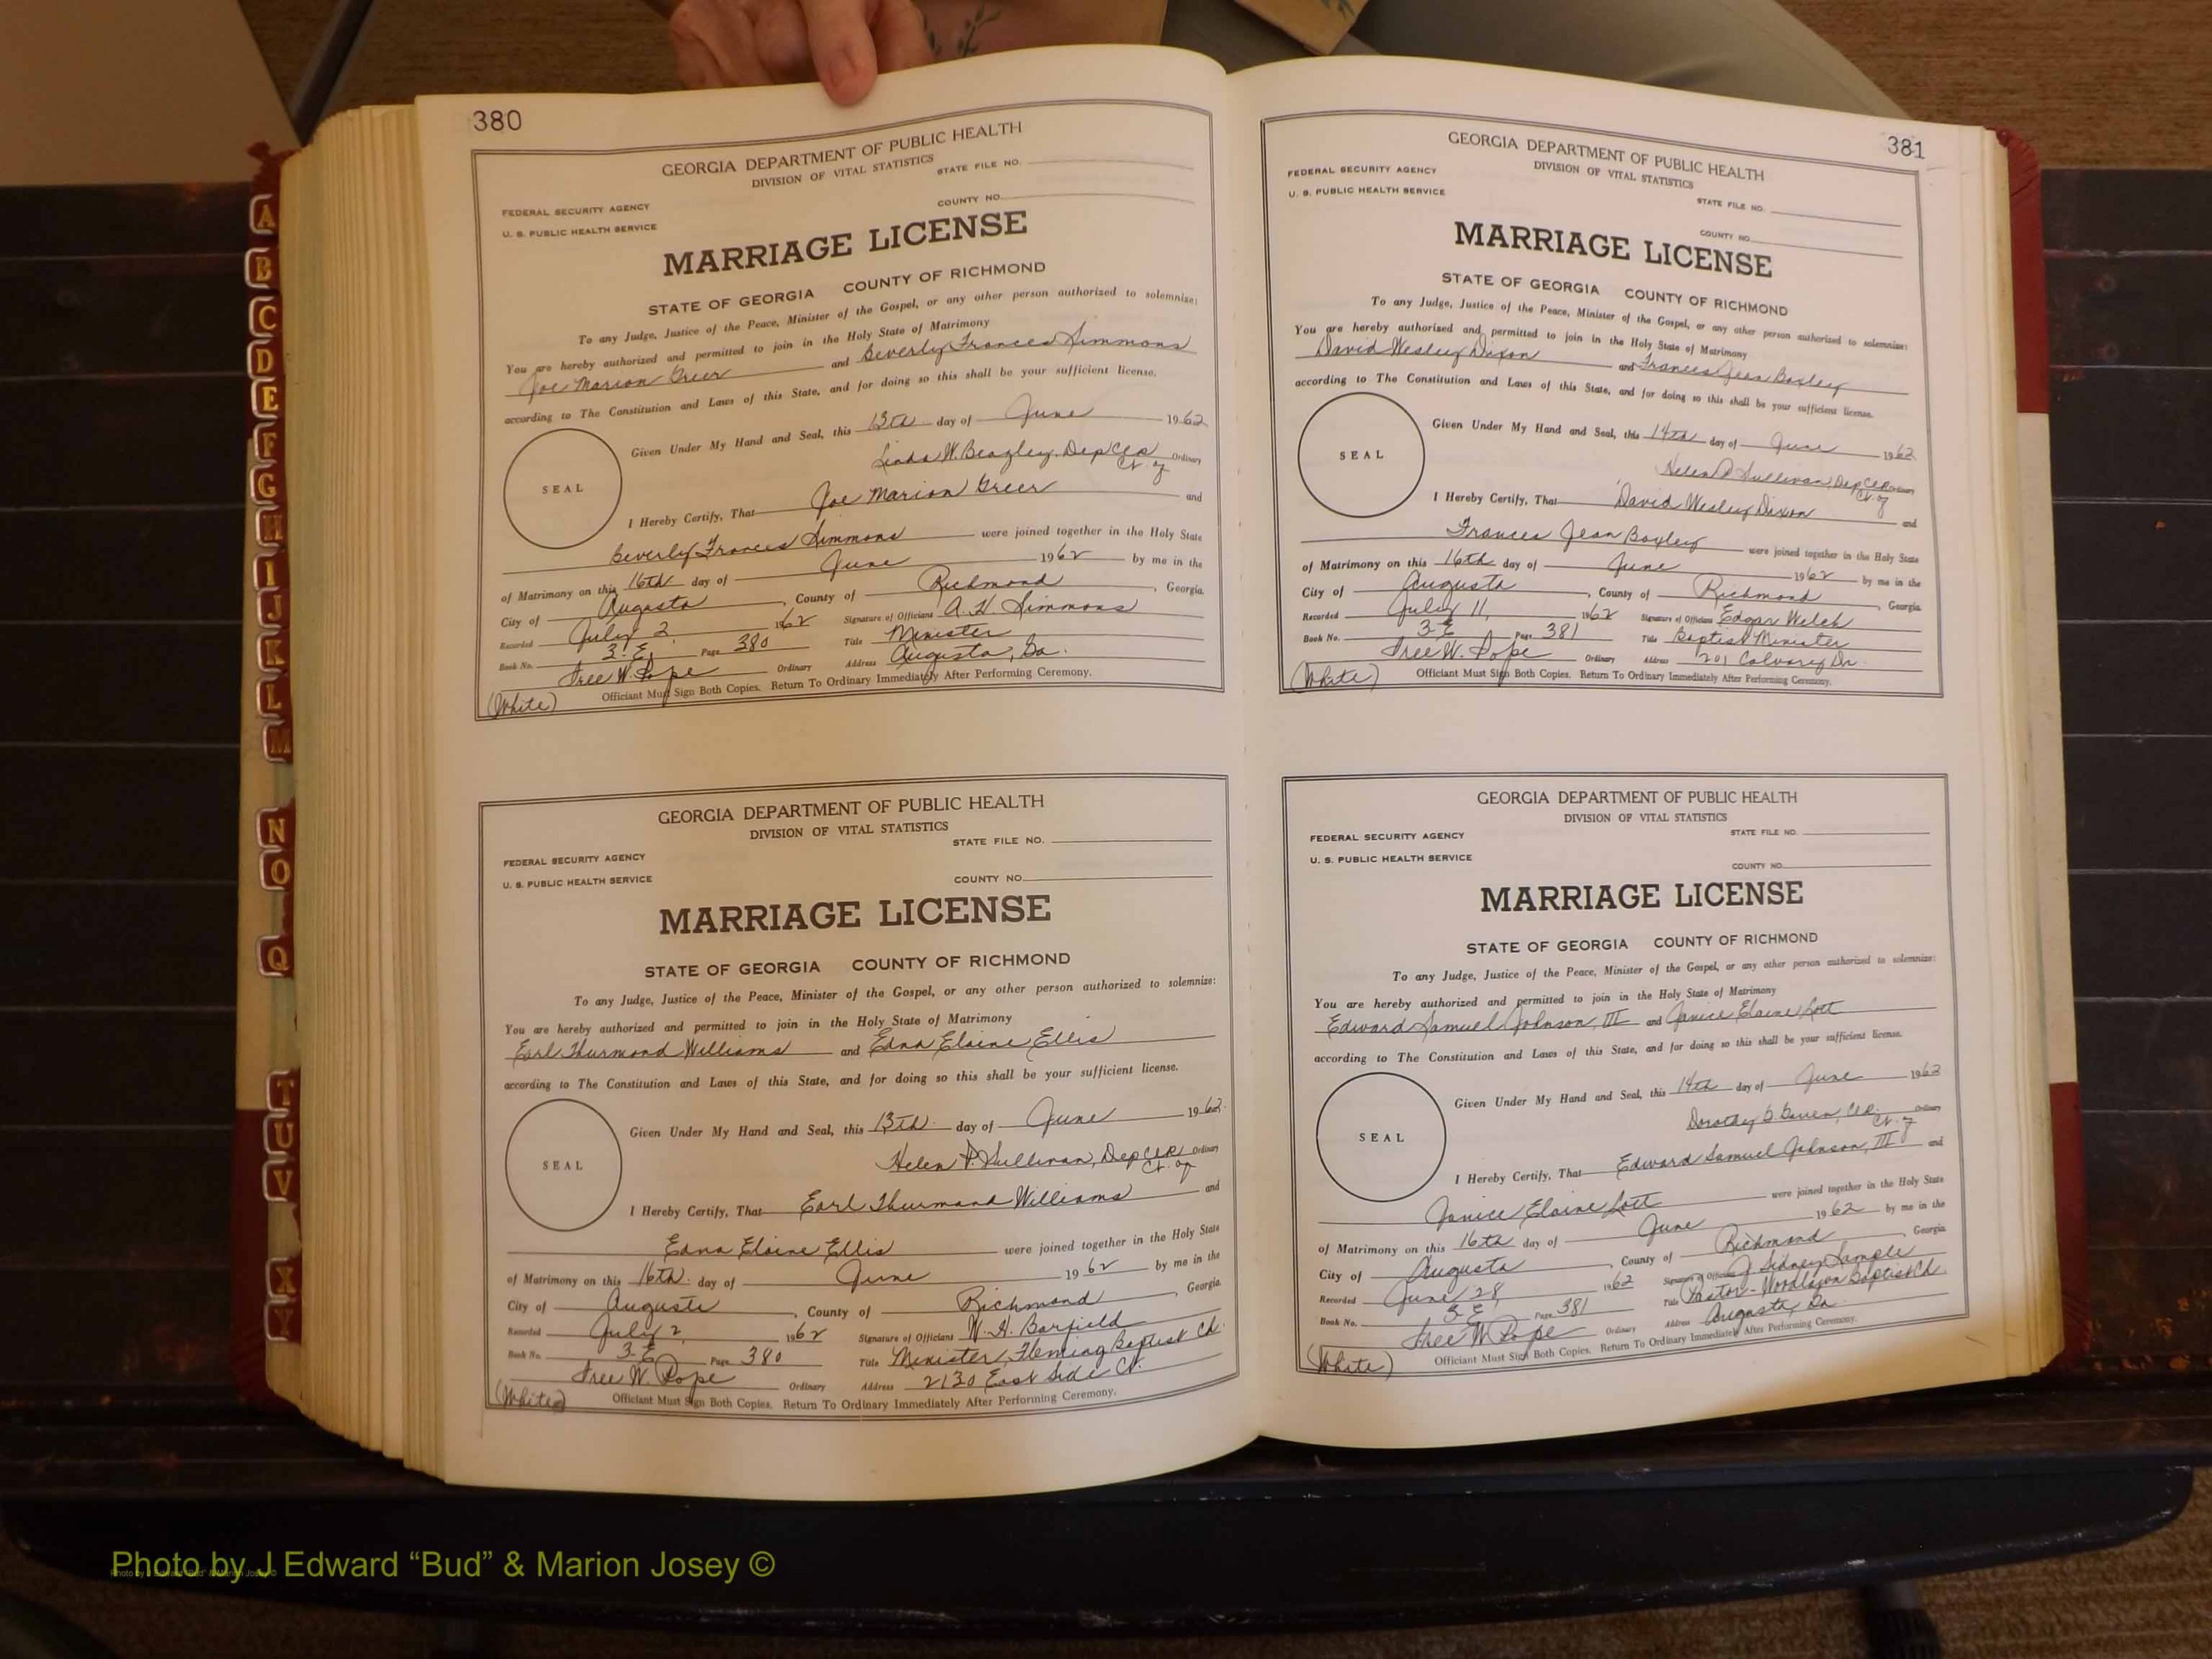 380
GEORGIA DEPARTMENT OF PUBLIC HEALTH
DIVISION OF VITAL STATISTICS
STATE FILE NO.
FEDERAL SECURITY AGENCY
COUNTY NO.
U. S. PUBLIC HEALTH SERVICE
MARRIAGE LICENSE
STATE OF GEORGIA COUNTY OF RICHMOND
To any Judge, Justice of the Peace, Minister of the Gospel, or any other person authorized to solemnize:
You are hereby authorized and permitted to join in the Holy State of Matrimony
Joe Marion Greer and Beverly Frances Simmons
according to The Constitution and Laws of this State, and for doing so this shall be your sufficient license.
Given Under My Hand and Seal, this 13th day of June 1962
Linda W. Beazley, Dep Clk Ordinary
Ct. of
SEAL
I Hereby Certify, That Joe Marion Greer and
Beverly Frances Simmons were joined together in the Holy State
of Matrimony on this 16th day of June 1962 by me in the
City of Augusta, County of Richmond, Georgia.
Recorded July 2, 1962 Signature of Officiant A. H. Simmons
Book No. 3-E, Page 380 Title Minister
Free W. Pope Ordinary Address Augusta, Ga.
(White) Officiant Must Sign Both Copies. Return To Ordinary Immediately After Performing Ceremony.
GEORGIA DEPARTMENT OF PUBLIC HEALTH
DIVISION OF VITAL STATISTICS
STATE FILE NO.
FEDERAL SECURITY AGENCY
U. S. PUBLIC HEALTH SERVICE
COUNTY NO.
MARRIAGE LICENSE
STATE OF GEORGIA COUNTY OF RICHMOND
To any Judge, Justice of the Peace, Minister of the Gospel, or any other person authorized to solemnize:
You are hereby authorized and permitted to join in the Holy State of Matrimony
Earl Thurmond Williams and Edna Elaine Ellis
according to The Constitution and Laws of this State, and for doing so this shall be your sufficient license.
Given Under My Hand and Seal, this 13th day of June 1962
Helen P. Sullivan, Dep Clk Ordinary
Ct. of
SEAL
I Hereby Certify, That Earl Thurmond Williams and
Edna Elaine Ellis were joined together in the Holy State
of Matrimony on this 16th day of June 1962 by me in the
City of Augusta, County of Richmond, Georgia
Recorded July 2, 1962 Signature of Officiant W. H. Barfield
Book No. 3-E Page 380 Title Minister, Fleming Baptist Ch.
Free W. Pope Ordinary Address 2130 East Side Ct.
(White) Officiant Must Sign Both Copies. Return To Ordinary Immediately After Performing Ceremony.
381
GEORGIA DEPARTMENT OF PUBLIC HEALTH
DIVISION OF VITAL STATISTICS
FEDERAL SECURITY AGENCY
U. S. PUBLIC HEALTH SERVICE
STATE FILE NO.
COUNTY NO.
MARRIAGE LICENSE
STATE OF GEORGIA COUNTY OF RICHMOND
To any Judge, Justice of the Peace, Minister of the Gospel, or any other person authorized to solemnize:
You are hereby authorized and permitted to join in the Holy State of Matrimony
David Wesley Dixon and Frances Jean Boxley
according to The Constitution and Laws of this State, and for doing so this shall be your sufficient license.
Given Under My Hand and Seal, this 14th day of June 1962
Helen P. Sullivan, Dep Clk Ordinary
Ct. of
SEAL
I Hereby Certify, That David Wesley Dixon and
Frances Jean Boxley were joined together in the Holy State
of Matrimony on this 16th day of June 1962 by me in the
City of Augusta, County of Richmond, Georgia
Recorded July 11, 1962 Signature of Officiant Edgar Welch
Book No. 3-E Page 381 Title Baptist Minister
Free W. Pope Ordinary Address 201 Calvary Dr.
(White) Officiant Must Sign Both Copies. Return To Ordinary Immediately After Performing Ceremony.
GEORGIA DEPARTMENT OF PUBLIC HEALTH
DIVISION OF VITAL STATISTICS
FEDERAL SECURITY AGENCY
STATE FILE NO.
U. S. PUBLIC HEALTH SERVICE
COUNTY NO.
MARRIAGE LICENSE
STATE OF GEORGIA COUNTY OF RICHMOND
To any Judge, Justice of the Peace, Minister of the Gospel, or any other person authorized to solemnize:
You are hereby authorized and permitted to join in the Holy State of Matrimony
Edward Samuel Johnson, III and Janice Elaine Lott
according to The Constitution and Laws of this State, and for doing so this shall be your sufficient license.
Given Under My Hand and Seal, this 14th day of June 1962
Dorothy Clk. Ordinary
Ct. of
SEAL
I Hereby Certify, That Edward Samuel Johnson, III and
Janice Elaine Lott were joined together in the Holy State
of Matrimony on this 16th day of June 1962 by me in the
City of Augusta, County of Richmond, Georgia
Recorded June 28, 1962 Signature of Officiant J. Sidney
Book No. 3-E Page 381 Title Pastor - Woodlawn Baptist Ch.
Free W. Pope Ordinary Address Augusta, Ga.
(White) Officiant Must Sign Both Copies. Return To Ordinary Immediately After Performing Ceremony.
A
B
C
D
E
F
G
H
I
J
K
L
M
N
O
Q
T
U
V
X
Y
Photo by J Edward “Bud” & Marion Josey ©
Photo by J Edward "Bud" & Marion Josey ©